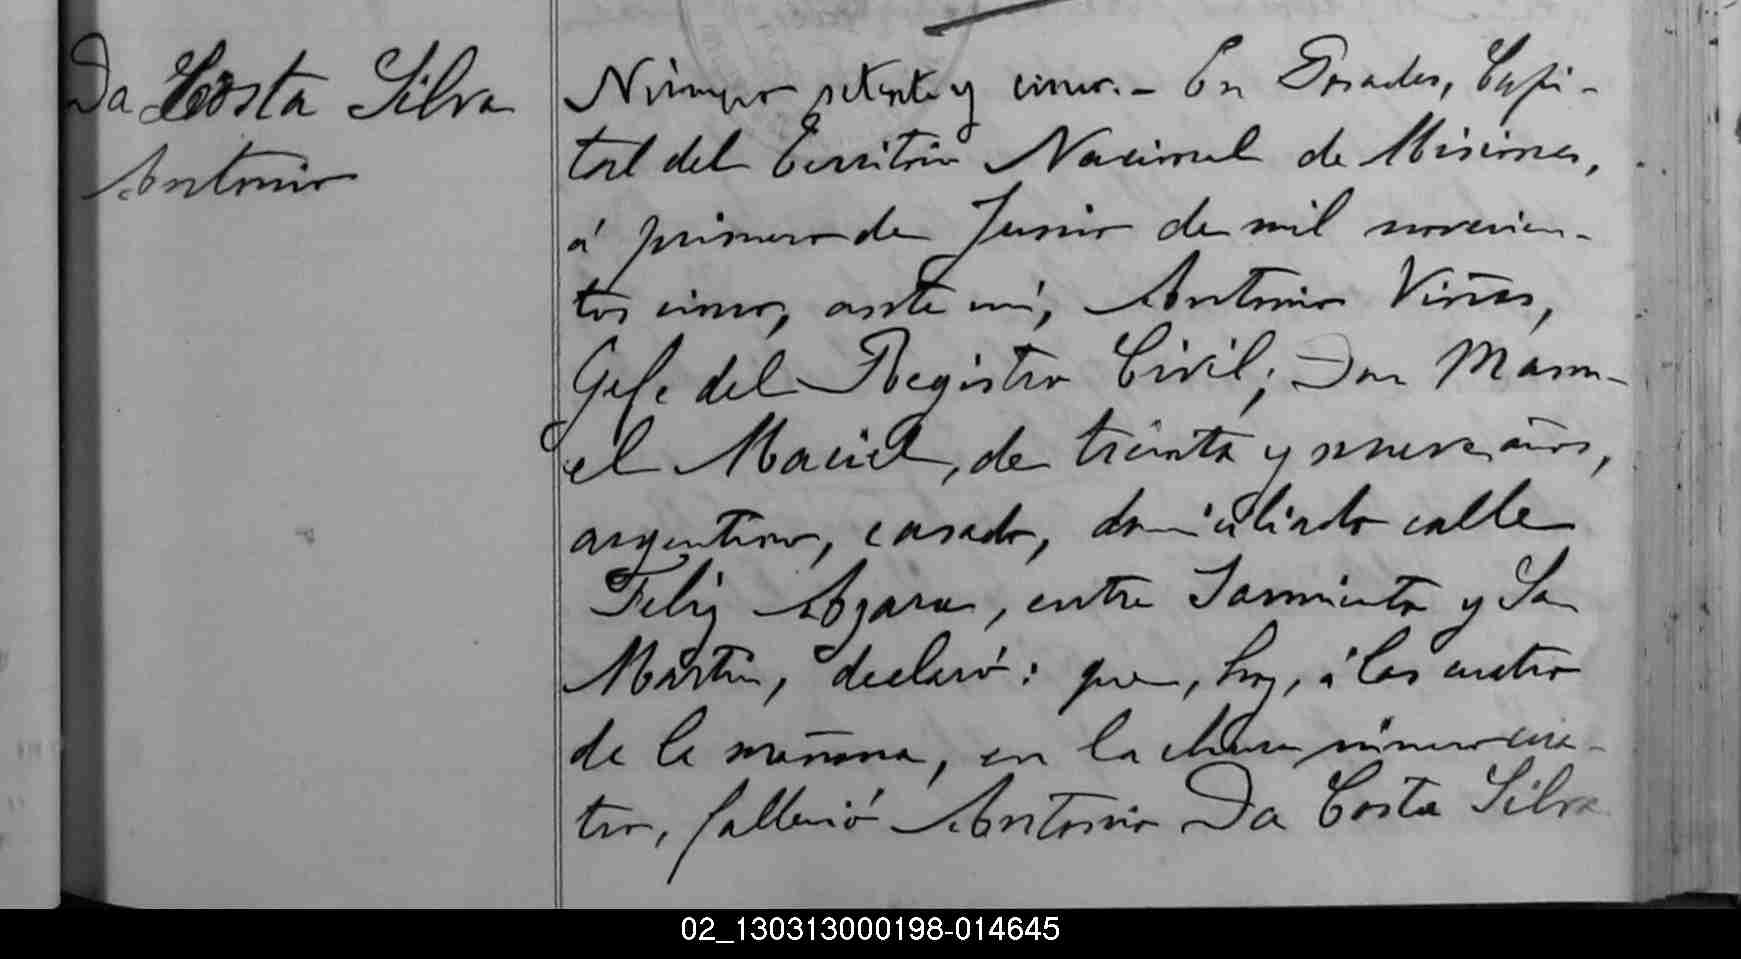 Da Costa Silva
Antonio
Número setenta y cinco.- En Posadas, Capi-
tal del Territorio Nacional de Misiones,
á primero de Junio de mil novecien-
tos cinco, ante mí, Antonio Viñas,
Gefe del Registro Civil; Don Manu-
el Maciel, de treinta y nueve años,
argentino, casado, domiciliado calle
Feliz Azara, entre Sarmiento y San
Martin, declaró: que, hoy, á las cuatro
de la mañana, en la chacra número cua-
tro, falleció Antonio Da Costa Silva
02_130313000198-014645